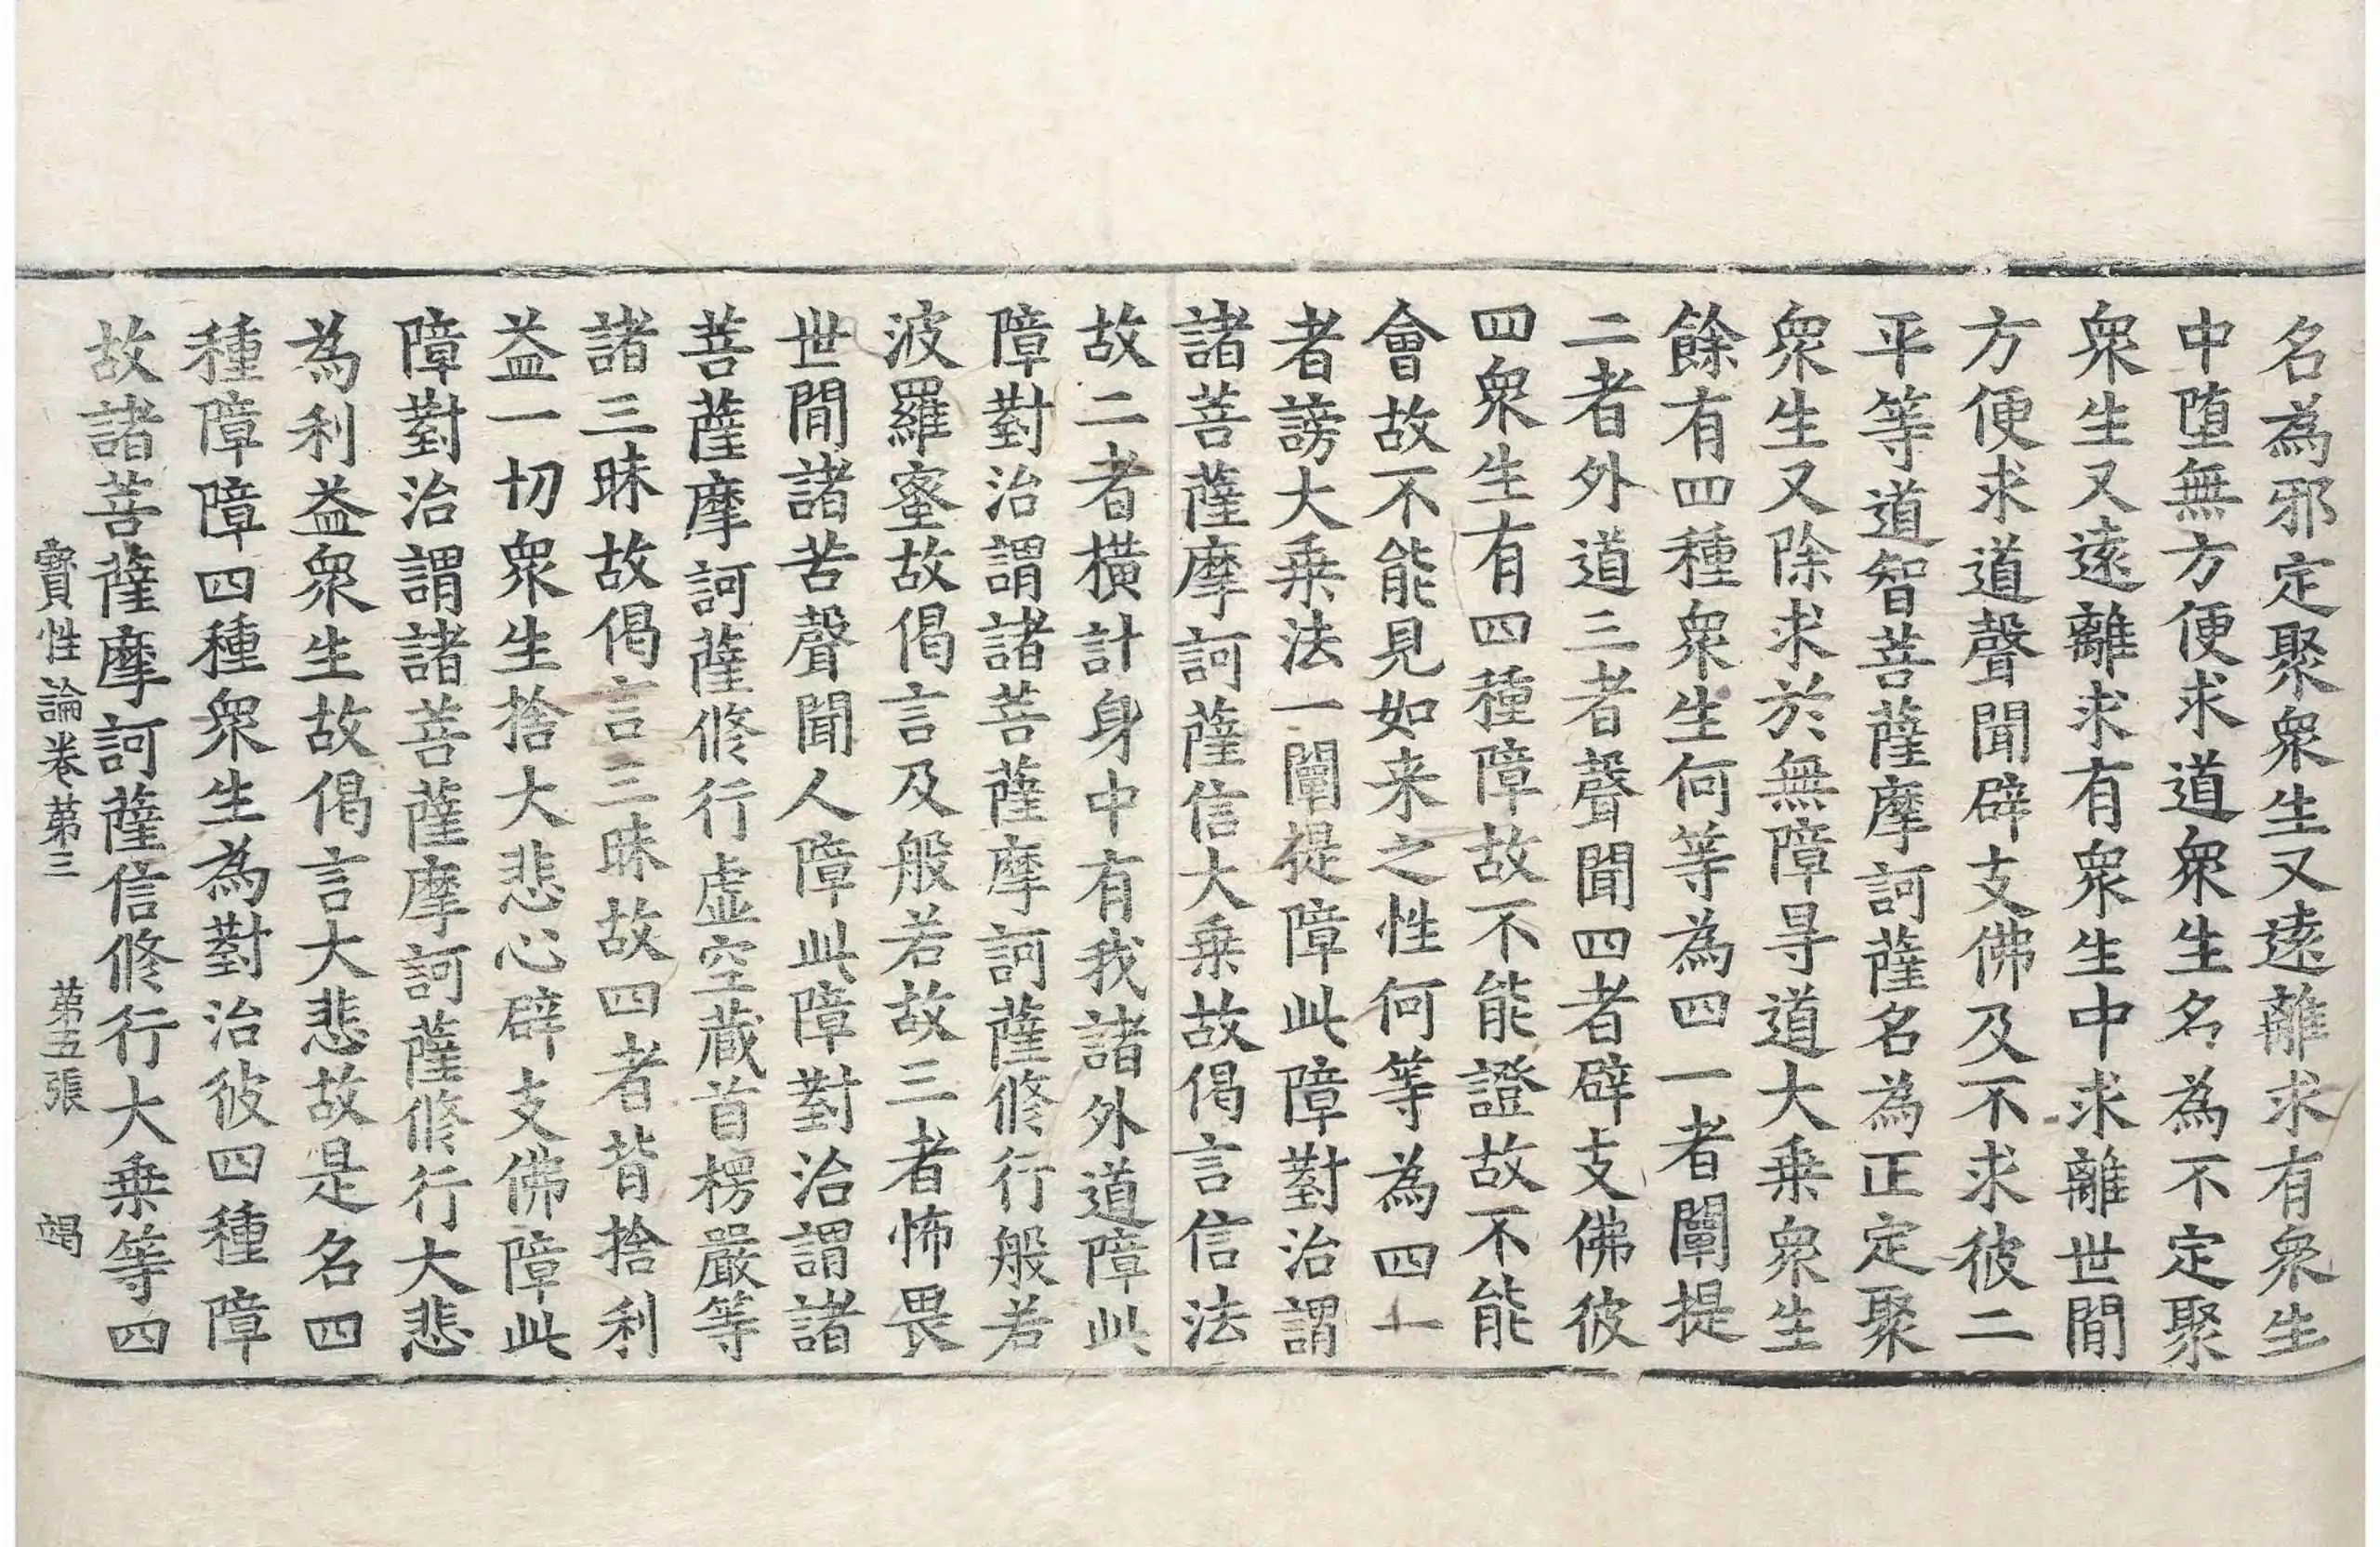 名為邪定聚衆生又遠離求有衆生
中堕無方便求道衆生名為不定聚
衆生又遠離求有衆生中求離世間
方便求道聲聞辟支佛及不求彼二
平等道智菩薩摩訶薩名為正定聚
衆生又除求於無障㝵道大乗衆生
餘有四種衆生何等為四一者闡提
二者外道三者聲聞四者辟支佛彼
四衆生有四種障故不能證故不能
會故不能見如来之性何等為四一
者謗大乗法一闡提障此障對治謂
諸菩薩摩訶薩信大乗故偈言信法
故二者横計身中有我諸外道障此
障對治謂諸菩薩摩訶薩修行般若
波羅蜜故偈言及般若故三者怖畏
世間諸苦聲聞人障此障對治謂諸
菩薩摩訶薩修行虚空蔵首楞嚴等
諸三昧故偈言三昧故四者背捨利
益一切衆生捨大悲心辟支佛障此
障對治謂諸菩薩摩訶薩修行大悲
為利益衆生故偈言大悲故是名四
種障障四種衆生為對治彼四種障
故諸菩薩摩訶薩信修行大乗等四
寳性論卷苐三 苐五張 竭